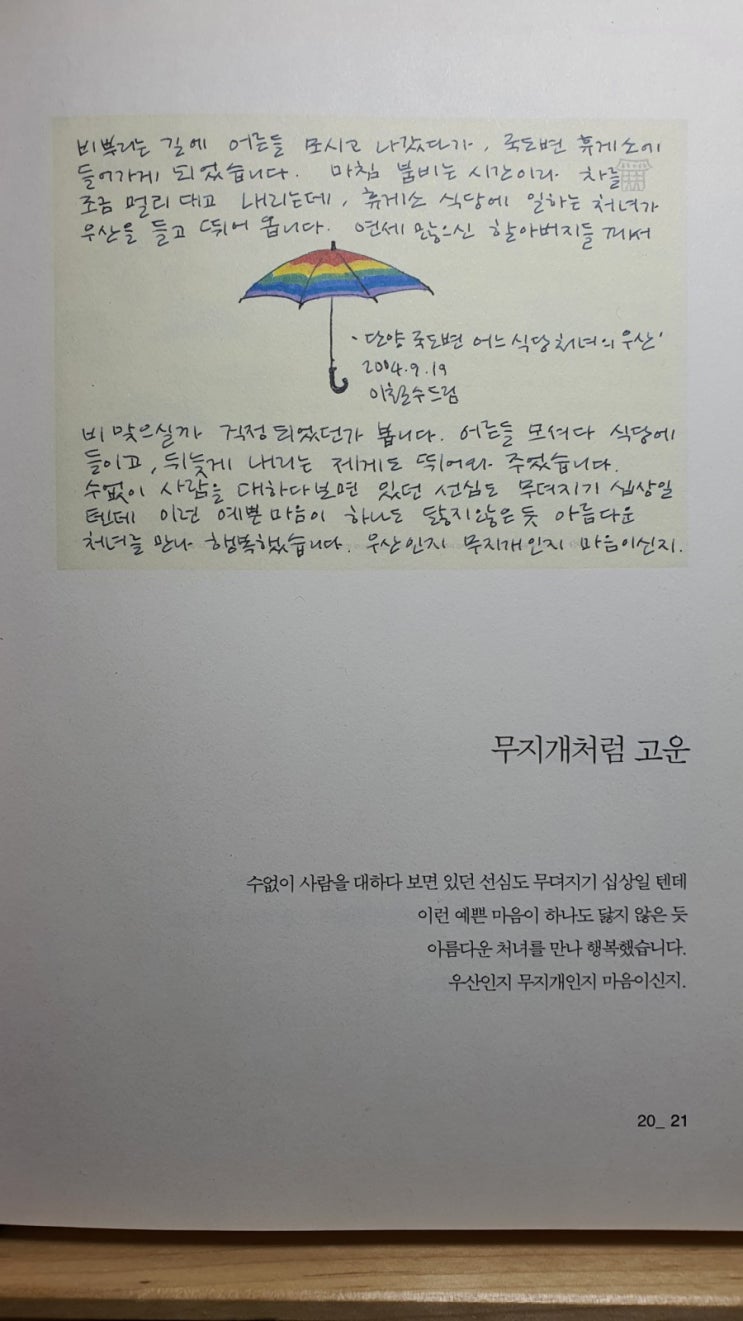 비뿌리는 길에 어른들 모시고 나갔다가, 국도변 휴게소에
들어가게 되었습니다. 마침 붐비는 시간이라 차를
조금 멀리 대고 내리는데, 휴게소 식당에 일하는 처녀가
우산을 들고 뛰어 옵니다. 연세 많으신 할아버지들께서
·단양 국도변 어느 식당 처녀의 우산'
2004.9.19
이철수드림
비 맞으실까 걱정 되었던가 봅니다. 어른들 모셔다 식당에
들이고, 뒤늦게 내리는 제게도 뛰어와 주었습니다.
수없이 사람을 대하다보면 있던 선심도 무뎌지기 십상일
텐데 이런 예쁜 마음이 하나도 닳지않은 듯 아름다운
처녀를 만나 행복했습니다. 우산인지 무지개인지 마음이신지.
무지개처럼 고운
수없이 사람을 대하다 보면 있던 선심도 무뎌지기 십상일 텐데
이런 예쁜 마음이 하나도 닳지 않은 듯
아름다운 처녀를 만나 행복했습니다.
우산인지 무지개인지 마음이신지.
20_ 21